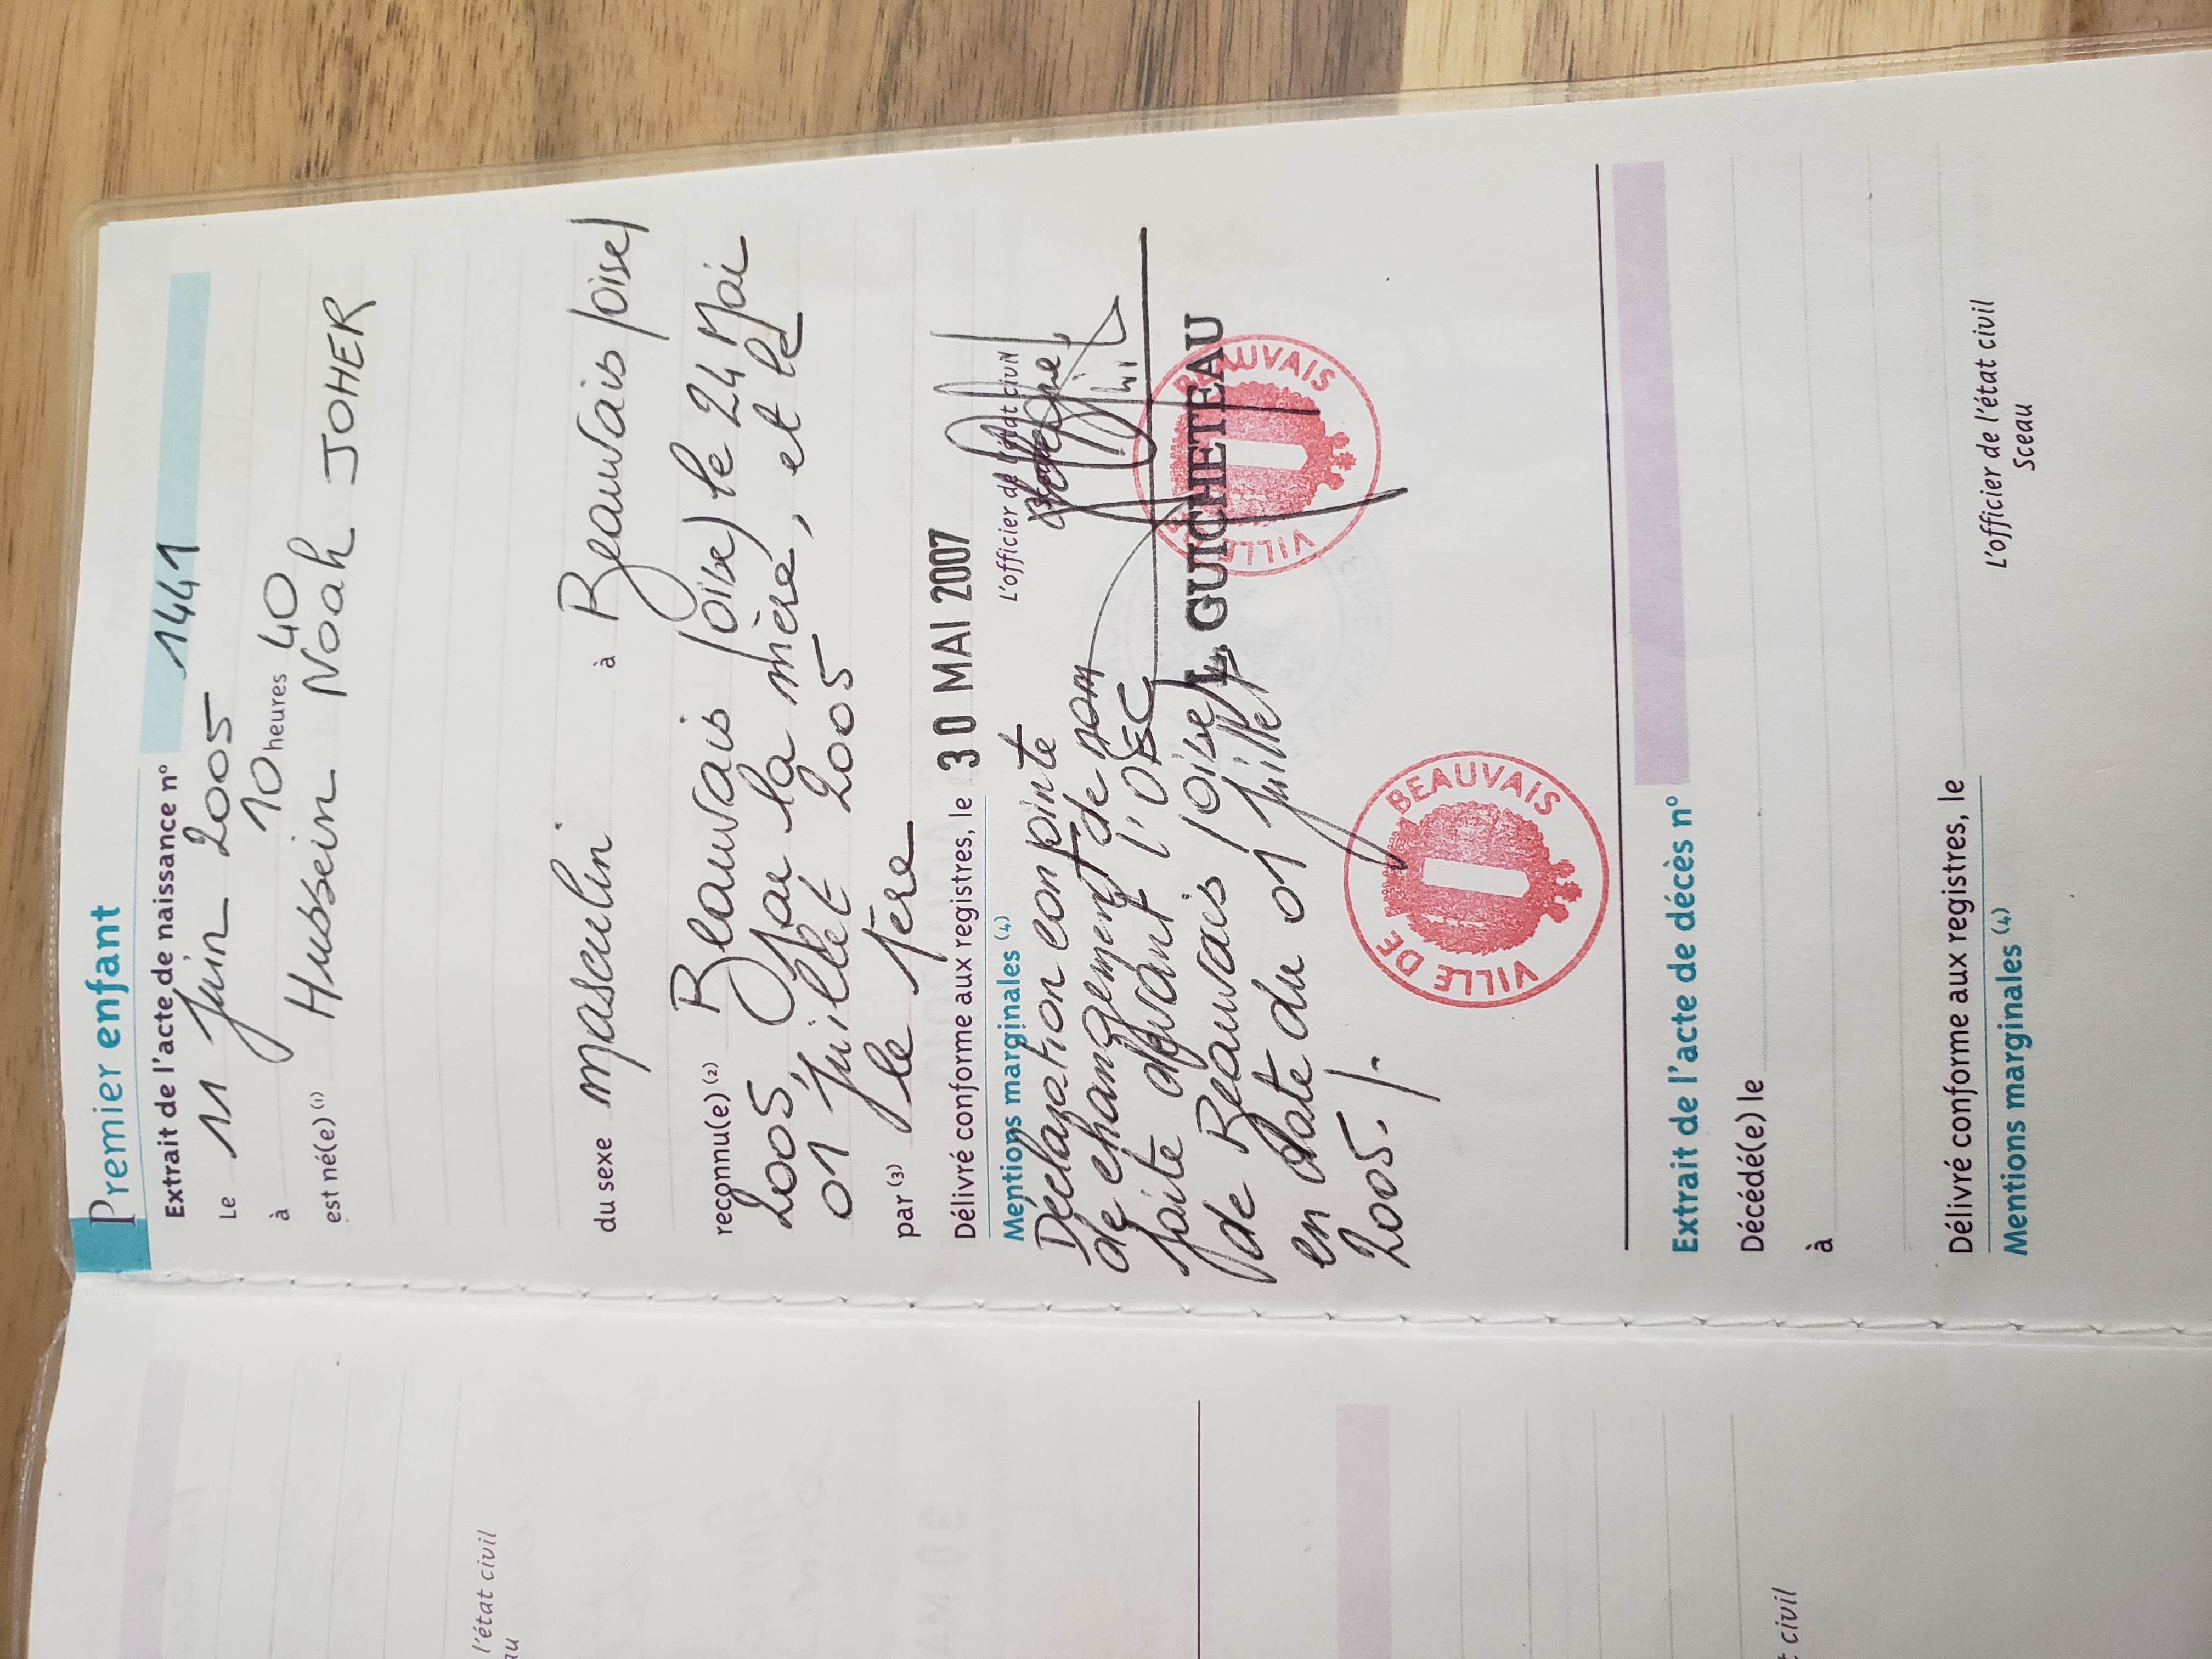 Premier enfant
Extrait de l'acte de naissance n° 1441
Le 11 Juin 2005
à 10 heures 40
est né(e) (1) Hussein Noah JOHER
du sexe masculin à Beauvais (oise)
reconnu(e) (2) Beauvais (oise) le 24 Mai
2005, par la mère, et le
01 Juillet 2005
par (3) le père
Délivré conforme aux registres, le 30 MAI 2007
Mentions marginales (4)
L'officier de l'état civil
Déclaration conjointe
de changement de nom
faite devant l'OEC
de Beauvais (oise)
en date du 01 Juillet
2005. /.
L. GUICHETEAU
VILLE DE BEAUVAIS
VILLE DE BEAUVAIS
Extrait de l'acte de décès n°
Décédé(e) le
à
Délivré conforme aux registres, le
Mentions marginales (4)
L'officier de l'état civil
Sceau
l'état civil
au
civil